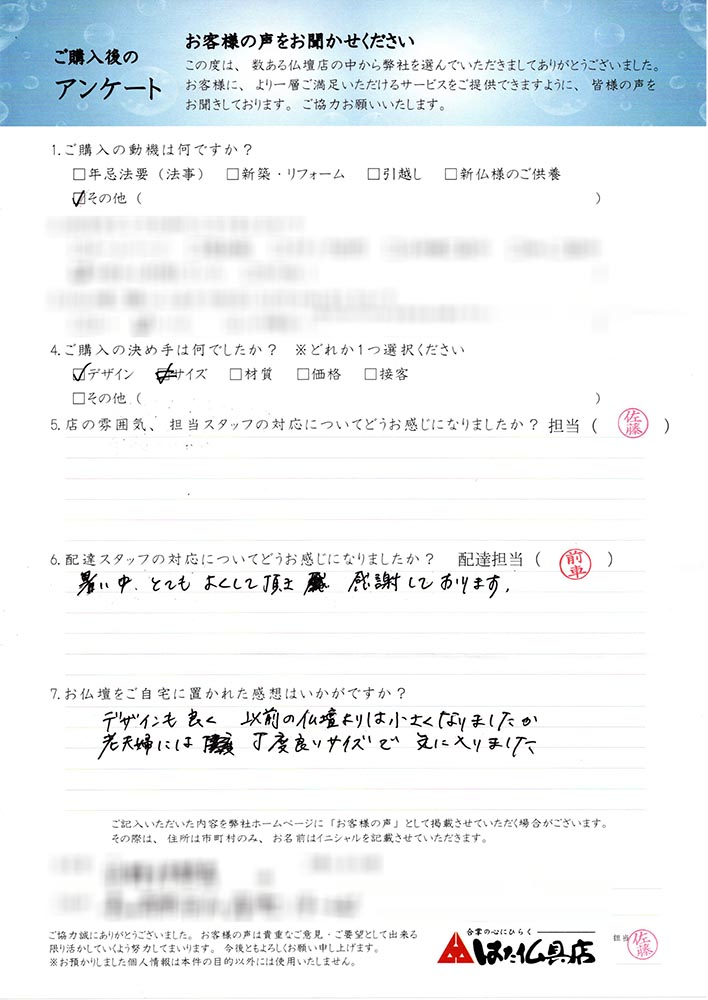 ご購入後の
アンケート
お客様の声をお聞かせください
この度は、数ある仏壇店の中から弊社を選んでいただきましてありがとうございました。
お客様に、より一層ご満足いただけるサービスをご提供できますように、皆様の声を
お聞きしております。ご協力お願いいたします。
1.ご購入の動機は何ですか?
□年忌法要(法事) □新築・リフォーム □引越し □新仏様のご供養
☑その他( )
4.ご購入の決め手は何でしたか? ※どれか1つ選択ください
☑デザイン ☑サイズ □材質 □価格 □接客
□その他( )
5.店の雰囲気、担当スタッフの対応についてどうお感じになりましたか? 担当( 佐藤 )
6.配達スタッフの対応についてどうお感じになりましたか? 配達担当( 前車 )
暑い中、とてもよくして頂き 感謝しております。
7.お仏壇をご自宅に置かれた感想はいかがですか?
デザインも良く 以前の仏壇よりは小さくなりましたが
老夫婦には 丁度良いサイズで 気に入りました
ご記入いただいた内容を弊社ホームページに「お客様の声」として掲載させていただく場合がございます。
その際は、住所は市町村のみ、お名前はイニシャルを記載させていただきます。
ご協力誠にありがとうございました。お客様の声は貴重なご意見・ご要望として出来る
限り活かしていくよう努力してまいります。今後ともよろしくお願い申し上げます。
※お預かりしました個人情報は本件の目的以外には使用いたしません。
合掌の心にひらく
はた仏具店
担当 佐藤